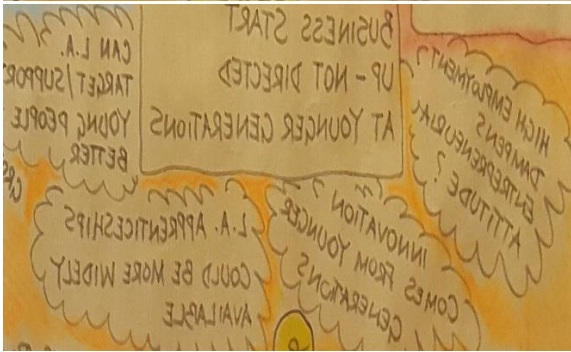 CAN L.A.
TARGET/SUPPOR
YOUNG PEOPLE
BETTER
BUSINESS START
UP - NOT DIRECTED
AT YOUNGER GENERATIONS
HIGH EMPLOYMENT?
DAMPENS
ENTREPRENEURIAL
ATTITUDE?
L.A. APPRENTICESHIPS
COULD BE MORE WIDELY
AVAILABLE
INNOVATION ?
COMES FROM YOUNGER
GENERATIONS